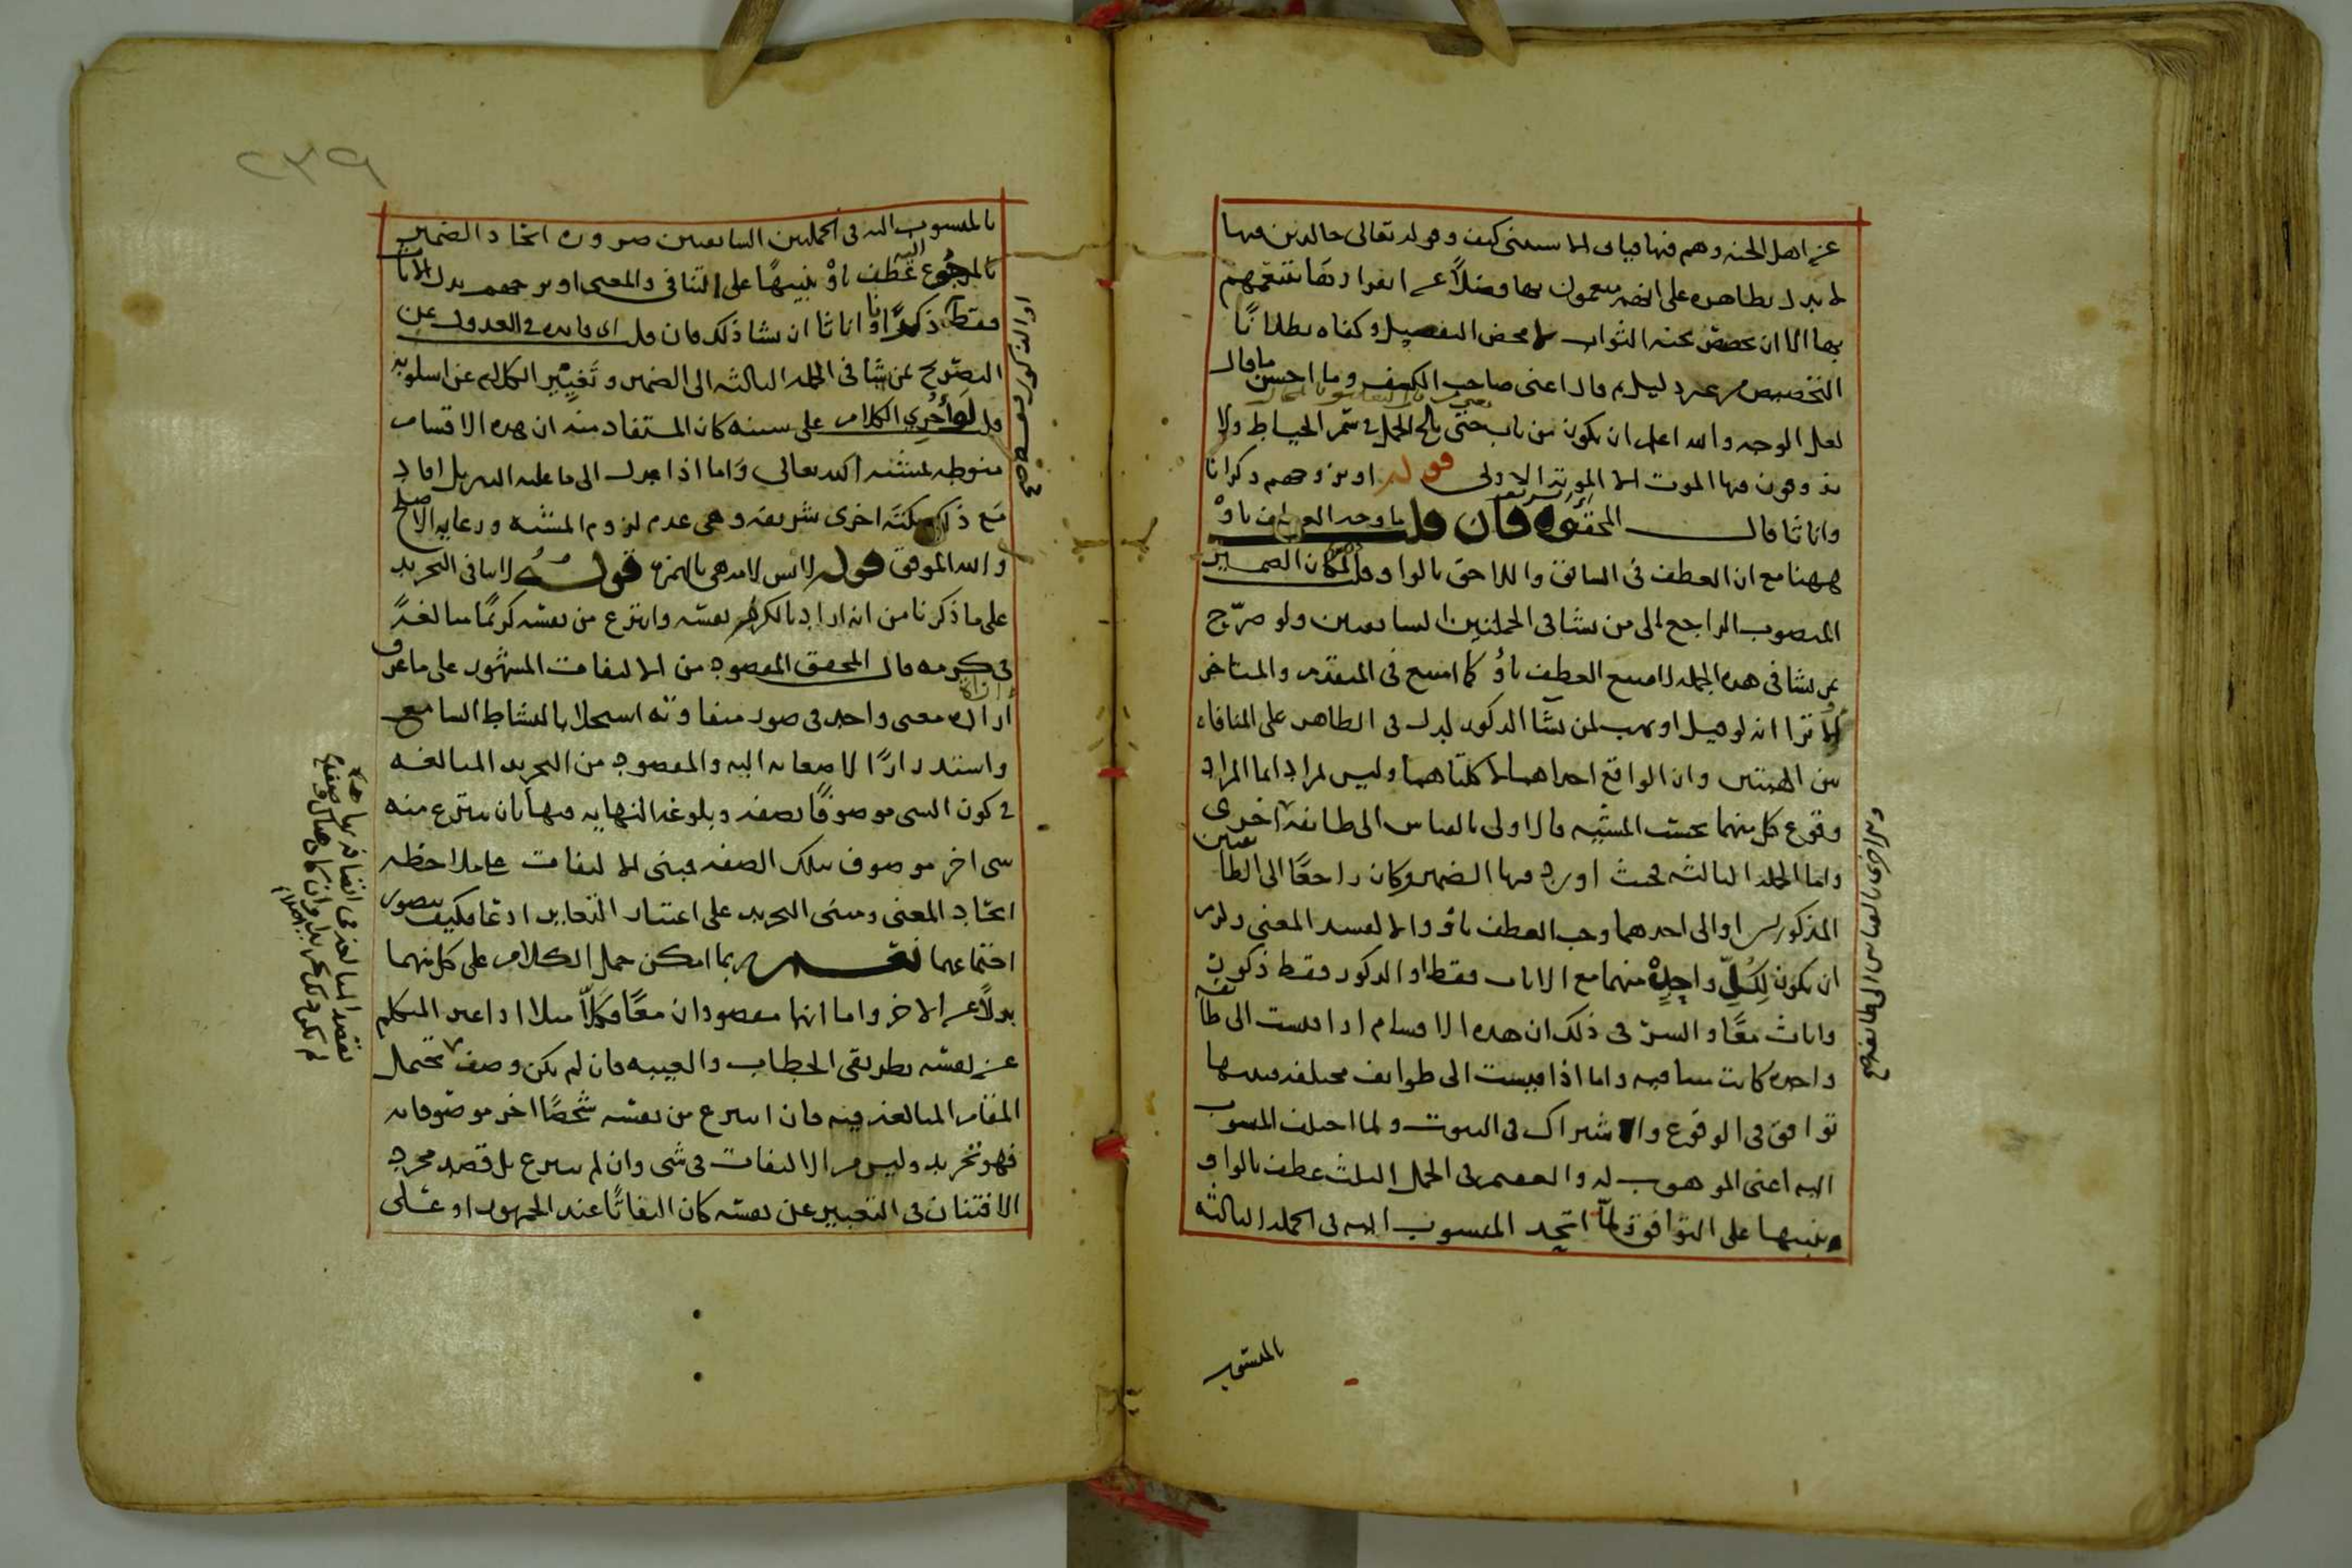 عن اهل الجنة وهم فيها فيأباه الاستثنى كيف وقوله تعالى خالدين فيها
لا يدل بظاهره على انهم منعمون بها فضلاً عن انفرادها بتنعمهم
بها الا ان يخصص بجنة الثواب لا محض التفضيل وكفاه بطلانًا
التخصيص من غير دليل ثم قال اعنى صاحب الكشف وما احسن ما قال
لعل الوجه والله اعلم ان يكون من باب حتى يلج الجمل في سم الخياط ولا
يذوقون فيها الموت الا الموتة الاولى قوله او يزوجهم ذكرانا
واناثا قال المحقق الشريف فان قلت ما وجه العطف باوْ
ههنا مع ان العطف في السابق واللاحق بالواو قلت لمكان الضمير
المنصوب الراجع الى من يشا في الجملتين السابقتين ولو صرّح
بمن يشا في هذه الجملة لامتنع العطف باوْ كما امتنع في المتقدم والمتاخر
الا ترا انه لو قيل او يهب لمن يشا الذكور لدل في الظاهر على المنافاه
بين الهبتين وان الواقع احداهما لا كلتاهما وليس لمراد انما المراد
وقوع كل منهما بحسب المشيه فالاولى بالقياس الى طائفة اخرى
واما الجملة الثالثة فحيث اورد فيها الضمير وكان راجعًا الى الطائفتين
المذكورتين او الى احدهما وجب العطف باوْ والا لفسد المعنى ولزم
ان يكون لِكُلِّ واحِدٍة منهما مع الاناث فقط او الذكور فقط ذكور
واناث معًا والسرّ في ذلك ان هذه الاقسام اذا قيست الى طائفة
واحده كانت متنافيه واما اذا قيست الى طوائف مختلفة فبينها
توافق في الوقوع والاشتراك في الثبوت ولما اختلف المنسوب
اليه اعنى الموهوب له والعقيم في الجمل الثلث عطف بالواو
تنبيها على التوافق ولمّا اتحد المنسوب اليه في الجملة الثالثة
بالمنسوب
بالمنسوب اليه في الجملتين السابقتين ضرورة اتحاد الضمير
بالمرجوع اليه عُطف باوْ تنبيهًا على التنافى والمعنى او يزوجهم بدل الاناث
فقط ذكرانًا واناثا ان يشا ذلك فان قلت اى فايده في العدول عن
التصريح بمن يشا في الجملة الثالثه الى الضمير وتَغييْر الكلام عن اسلوبه
قلت لو أجُري الكلام على سننه كان المستفاد منه ان هذه الاقسام
منوطه بمشئته الله تعالى وَاما اذا عدل الى ما عليه النظم بل افاد
مَع ذلك نكتَة اخرى شريفة وهى عدم لزوم المشئه ورعايه الاصلح
والله الموفق قوله لا انس لا مذهى بالهمزة قولُهُ لا ينافى التجريد
على ما ذكرنا من انه اراد بالكريم نفسَه وانتزع من نفسه كريمًا مبالغةً
في كرمه قال المحقق المقصود من الالتفات المشهور على ما عرف
ارادة معنى واحد في صور متفاوته استجلابا لنشاط السامع
واستدرارًا لاصغائه اليه والمقصود من التجريد المبالغه
في كون الشى موصوفًا بصفة وبلوغه النهايه فيها بان ينتزع منه
شى اخر موصوف بتلك الصفه فمبنى الالتفات على ملاحظه
اتحاد المعنى ومبنى التجريد على اعتبار التغاير ادعًا فكيف يتصور
اجتماعهما نعم ربما امكن حمل الكلام على كل منهما
بدلًا عن الاخر واما انهما مقصودان معًا فَكَلَّا مثلا اذا عبر المتكلم
عن نفسه بطريقى الخطاب والغيبه فان لم يكن وصف يحتمل
المقام المبالغة فيه فان انتزع من نفسه شخصًا اخر موصوفا به
فهو تجريد وليس من الالتفات في شى وان لم ينتزع بل قصد مجرد
الافتنان في التعبير عن نفسه كان التفاتًا عند الجمهور او على